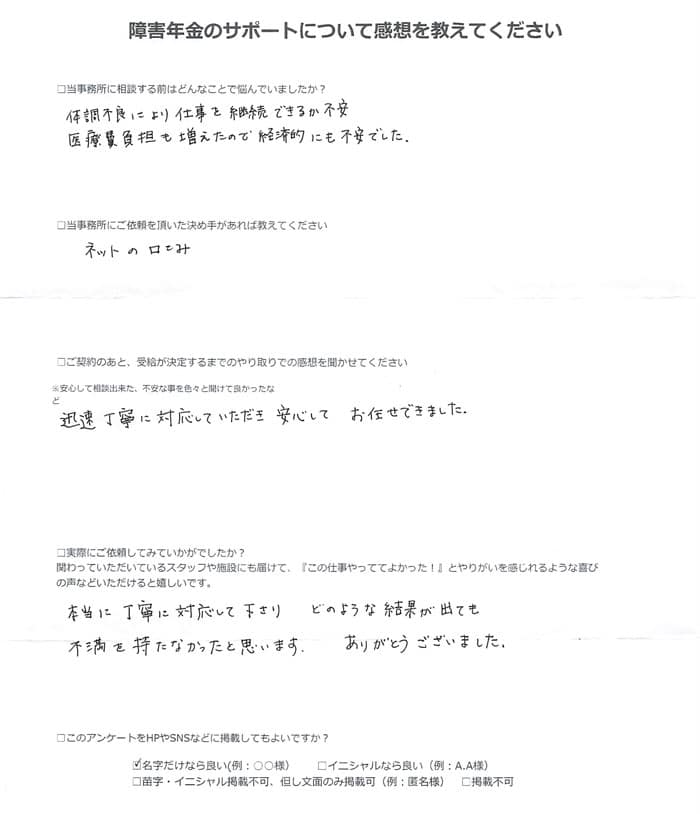 障害年金のサポートについて感想を教えてください
□当事務所に相談する前はどんなことで悩んでいましたか？
体調不良により仕事を継続できるか不安
医療費負担も増えたので経済的にも不安でした.
□当事務所にご依頼を頂いた決め手があれば教えてください
ネットの口こみ
□ご契約のあと、受給が決定するまでのやり取りでの感想を聞かせてください
※安心して相談出来た、不安な事を色々と聞けて良かったな
ど
迅速丁寧に対応していただき安心して お任せできました.
□実際にご依頼してみていかがでしたか？
関わっていただいているスタッフや施設にも届けて、『この仕事やっててよかった！』とやりがいを感じれるような喜び
の声などいただけると嬉しいです。
本当に丁寧に対応して下さり どのような結果が出ても
不満を持たなかったと思います. ありがとうございました.
□このアンケートをHPやSNSなどに掲載してもよいですか？
☑名字だけなら良い(例：○○様) □イニシャルなら良い（例：A.A様）
□苗字・イニシャル掲載不可、但し文面のみ掲載可（例：匿名様） □掲載不可